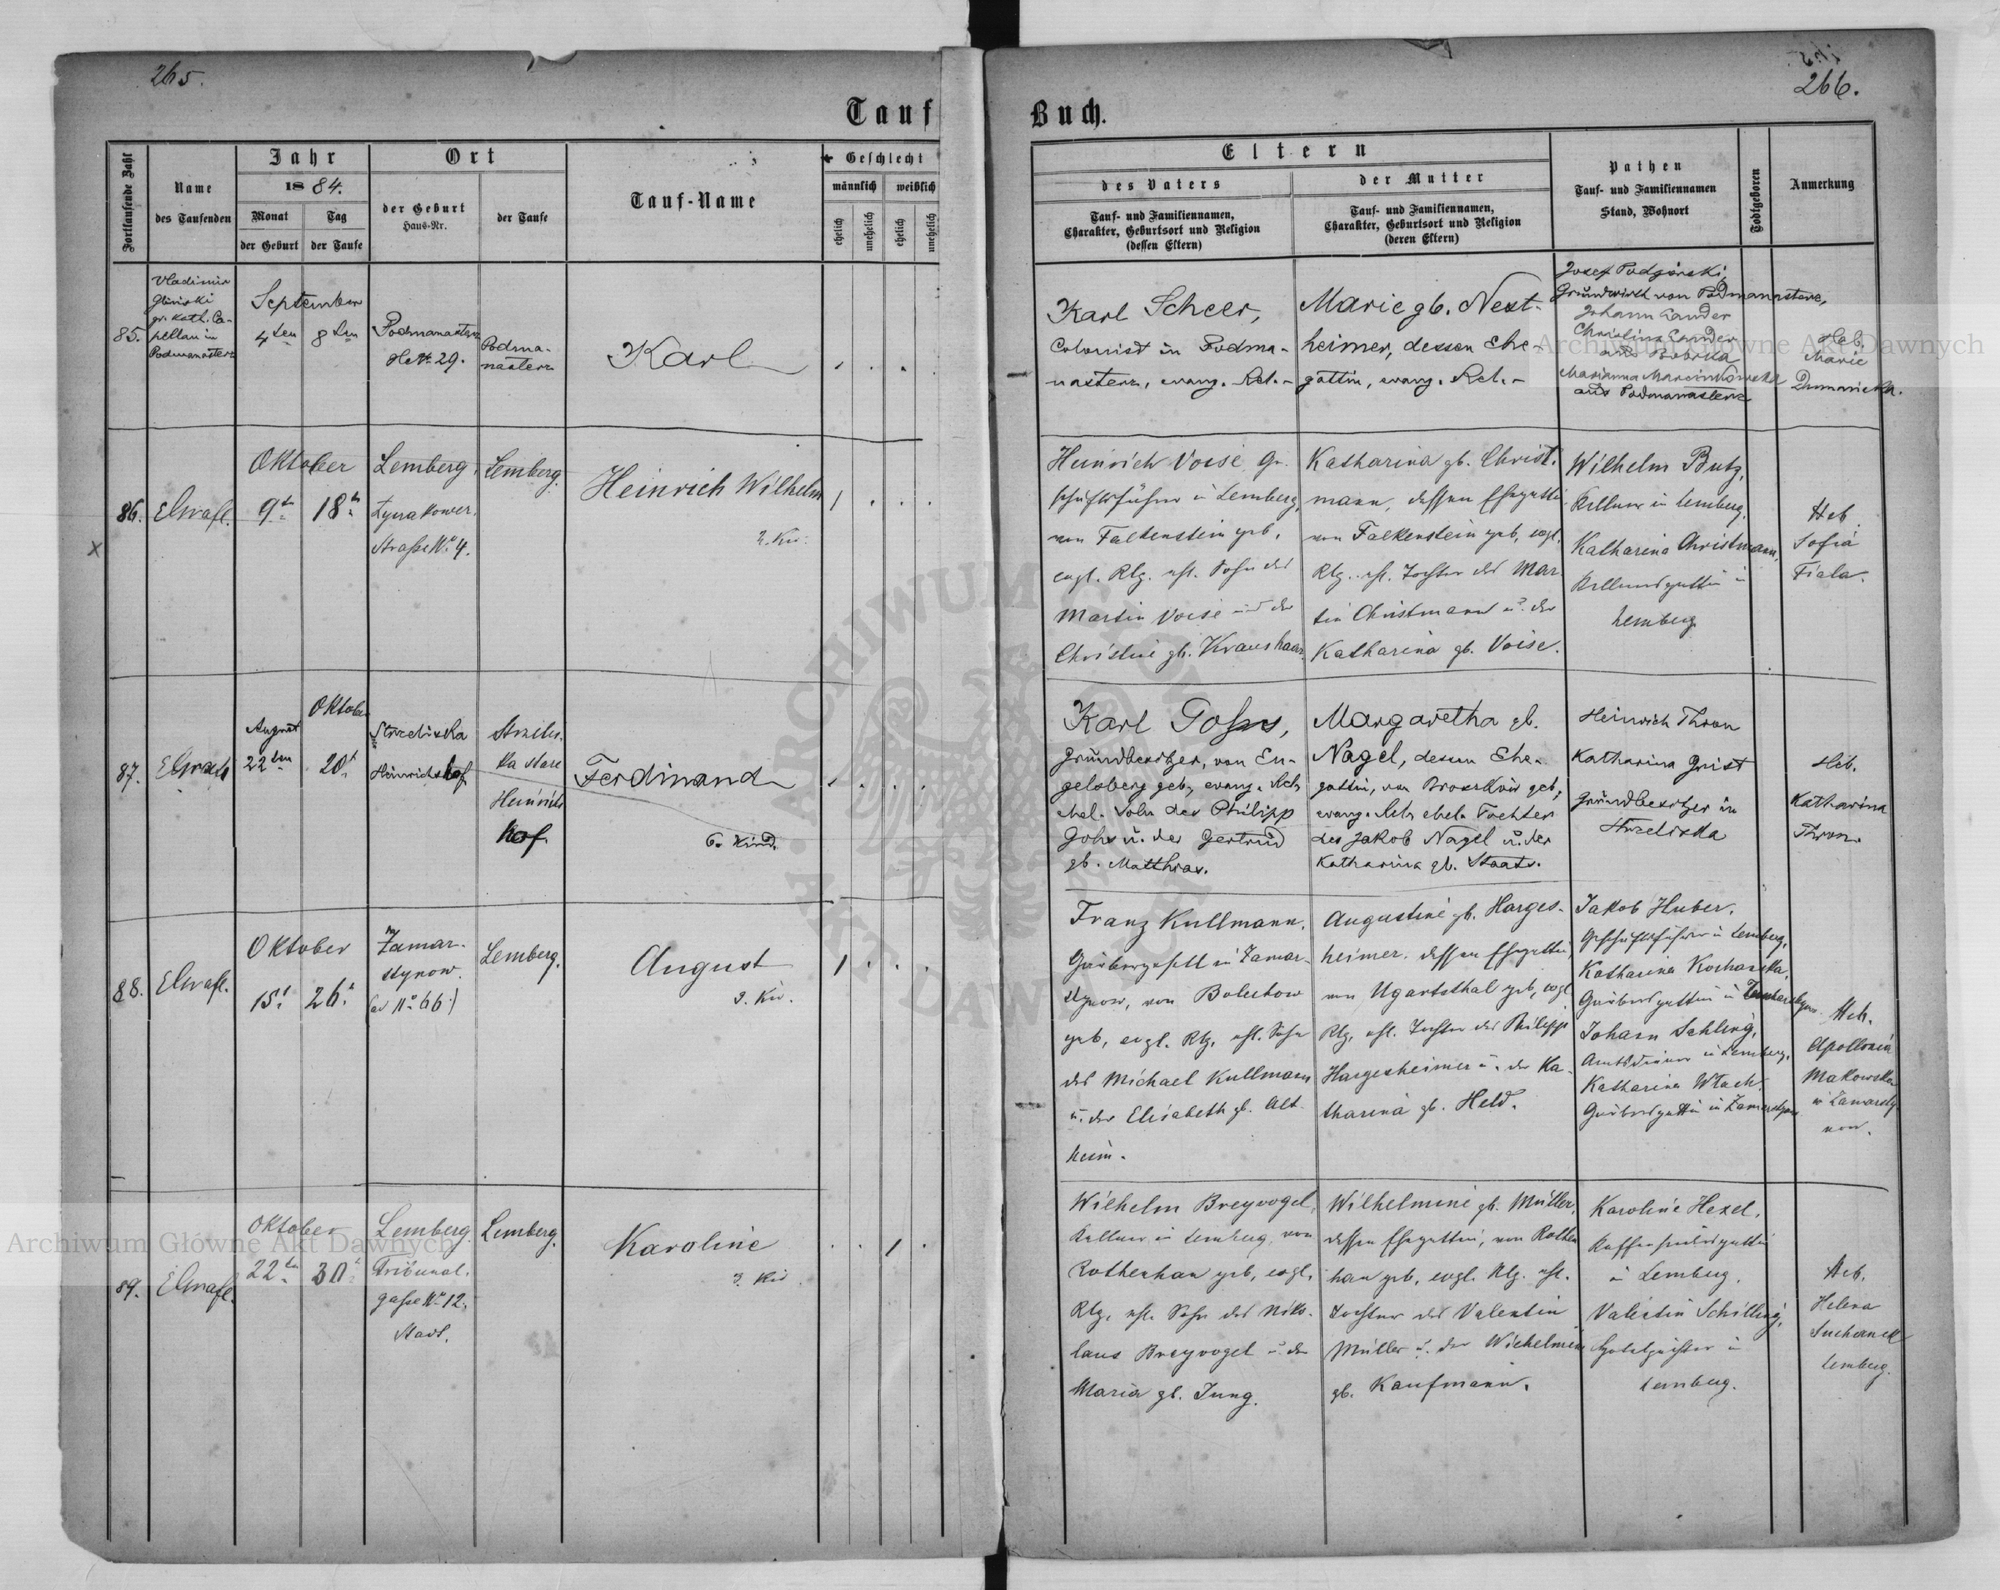 265.
266.
Tauf
Buch.
Fortlaufende Zahl
Name
des Taufenden
Jahr
1884.
Monat
der Geburt
Tag
der Taufe
Ort
der Geburt
Haus-Nr.
der Taufe
Tauf-Name
Geschlecht
männlich
weiblich
ehelich
unehelich
ehelich
unehelich
Eltern
des Vaters
Tauf- und Familiennamen,
Charakter, Geburtsort und Religion
(dessen Eltern)
der Mutter
Tauf- und Familiennamen,
Charakter, Geburtsort und Religion
(deren Eltern)
Pathen
Tauf- und Familiennamen
Stand, Wohnort
Todtgeboren
Anmerkung
85.
Vladimir
Gliniski
gr. kath. Ca-
pellan in
Podmanasterz
September
4ten
8ten
Podmanasterz
No 29.
Podma-
nasterz
Karl
Karl Scheer,
Colonist in Podma-
nasterz, evang. Rel.-
Marie gb. Nest-
heimer, dessen Ehe-
gattin, evang. Rel.-
Josef Podgórski,
Grundwirth von Podmanasterz,
Johann Lander
Christina Lander
aus Bobrka
Marianna Marcinkowska
aus Podmanasterz
Heb.
Marie
86.
Oktober
9tn
18tn
Lemberg,
Straße No 4.
Lemberg.
Heinrich Wilhelm
2. Kid.
Heinrich Voise, Ge-
schäftsführer in Lemberg,
von Falkenstein geb.,
evgl. Rlg. ehl. Sohn des
Martin Voise und der
Christine gb. Kraushaar.
Katharina gb. Christ-
mann, dessen Ehegattin
von Falkenstein geb, evgl.
Rlg. ehl. Tochter des Mar-
tin Christmann u. der
Katharina gb. Voise.
Wilhelm Butz,
Kellner in Lemberg.
Katharina Christmann,
Kellnersgattin in
Lemberg
Heb
Sofia
Fiala.
87.
August
22ten
Oktober
20t
Strzeliska
Heinrichshof
Strzelis-
ka stare
Heinrichs
hof.
Ferdinand
6. Kind.
Karl Johs,
Grundbesitzer, von En-
gelsberg geb, evang. Rel,
ehel. Sohn des Philipp
Johs u. der Gertrud
gb. Matthias.
Margaretha gb.
Nagel, dessen Ehe-
gattin, von Brodzkie geb,
evang. Rel, ehel. Tochter
des Jakob Nagel u. der
Katharina gb. Staats.
Heinrich Thron
Katharina Geist
Grundbesitzer in
Strzeliska
Heb.
Katharina
Thron.
88.
Oktober
15t
26t
Zamar-
stynow.
No 66
Lemberg.
August
3. Kid.
Franz Kullmann,
Gärbergesell in Zamar-
stynow, von Bolechow
geb, evgl. Rlg, ehl. Sohn
des Michael Kullmann
u. der Elisabeth gb. Alt-
heim.
Augustine gb. Harges-
heimer, dessen Ehegattin,
von Ugartsthal geb, evgl
Rlg, ehl. Tochter des Philipp
Hargesheimer u. der Ka-
tharina gb. Held.
Jakob Huber,
Geschäftsführer in Lemberg,
Katharina Kochanska,
Gärbersgattin in
Johann Schling,
Amtsdiener in Lemberg,
Katharina Wlach,
Gärbersgattin in Zamarstynow
Heb.
Apollonia
Makowska
in Zamarsty-
now.
89.
Oktober
22tn
30t
Lemberg
Tribunal-
gasse No 12.
Stadt.
Lemberg.
Karoline
3. Kid.
Wilhelm Breyvogel,
Kellner in Lemberg, von
Rothenhan geb, evgl.
Rlg, ehl. Sohn des Niko-
laus Breyvogel u. der
Maria gb. Jung.
Wilhelmine gb. Müller,
dessen Ehegattin, von Rothen-
han geb, evgl. Rlg. ehl.
Tochter des Valentin
Müller u. der Wilhelmine
gb. Kaufmann.
Karoline Hexel,
in Lemberg.
Valentin Schilling,
in
Lemberg.
Heb.
Helena
Suchanek
Lemberg.
Archiwum Główne Akt Dawnych
Archiwum Główne Akt Dawnych